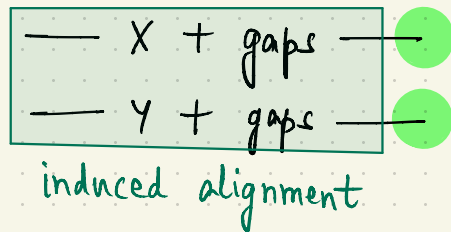 — X + gaps —
— Y + gaps —
induced alignment